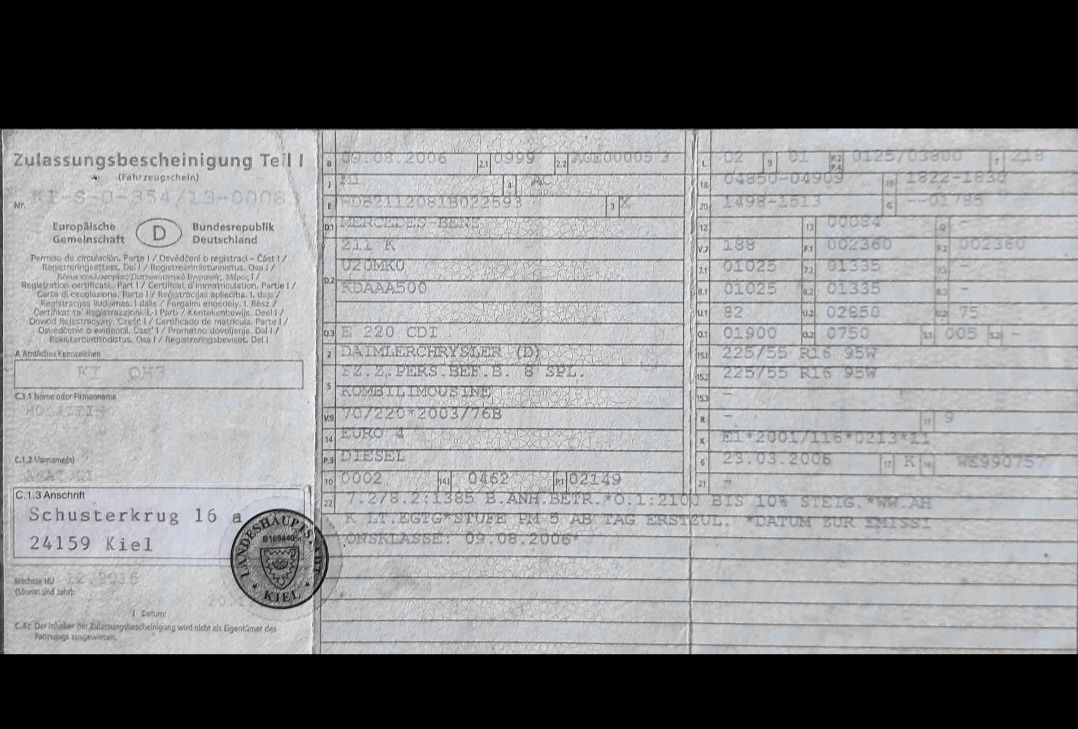 Zulassungsbescheinigung Teil I
(Fahrzeugschein)
Nr.
Europäische Gemeinschaft
D
Bundesrepublik Deutschland
Permiso de circulación. Parte I / Osvědčení o registraci - Část I /
Registreringsattest. Del I / Registreerimistunnistus. Osa I /
Registration certificate. Part I / Certificat d'immatriculation. Partie I /
Carta di circolazione. Parte I / Reģistrācijas apliecība. I. daļa /
Registracijos liudijimas. I dalis / Forgalmi engedély. I. Rész /
Ċertifikat ta' Reġistrazzjoni. L-I Parti / Kentekenbewijs. Deel I /
Dowód Rejestracyjny. Część I / Certificado de matrícula. Parte I /
Osvedčenie o evidencii. Časť I / Prometno dovoljenje. Del I /
Rekisteröintitodistus. Osa I / Registreringsbeviset. Del I
A Amtliches Kennzeichen
KI
C.1.1 Name oder Firmenname
C.1.2 Vorname(n)
C.1.3 Anschrift
Schusterkrug 16 a
24159 Kiel
LANDESHAUPTSTADT
KIEL
Nächste HU
(Monat und Jahr):
Datum:
C.4c Der Inhaber der Zulassungsbescheinigung wird nicht als Eigentümer des
Fahrzeugs ausgewiesen.
B 09.08.2006 2.1 0999 2.2
J M1 4 AC
E 3 X
D.1 MERCEDES-BENZ
211 K
D.2 U20MK0
KDAAA500
D.3 E 220 CDI
2 DAIMLERCHRYSLER (D)
5 FZ.Z.PERS.BEF.B. 8 SPL.
KOMBILIMOUSINE
V.9 70/220*2003/76B
14 EURO 4
P.3 DIESEL
10 0002 14.1 0462 P.1 02149
22 7.2/8.2:1385 B.ANH.BETR.*O.1:2100 BIS 10% STEIG.*WW.AH
K LT.EGTG*STUFE PM 5 AB TAG ERSTZUL. *DATUM ZUR EMISSI
ONSKLASSE: 09.08.2006*
L 02 9 01 P.2 P.4 0125/03800 T 218
18 04850-04909 19 1822-1830
20 1498-1513 G --01785
12 - 13 00084 Q -
V.7 188 F.1 002360 F.2 002360
7.1 01025 7.2 01335 7.3 -
8.1 01025 8.2 01335 8.3 -
U.1 82 U.2 02850 U.3 75
O.1 01900 O.2 0750 S.1 005 S.2 -
15.1 225/55 R16 95W
15.2 225/55 R16 95W
15.3 -
R - 11 9
K E1*2001/116*0213*11
6 23.03.2006 17 K 16
21 -